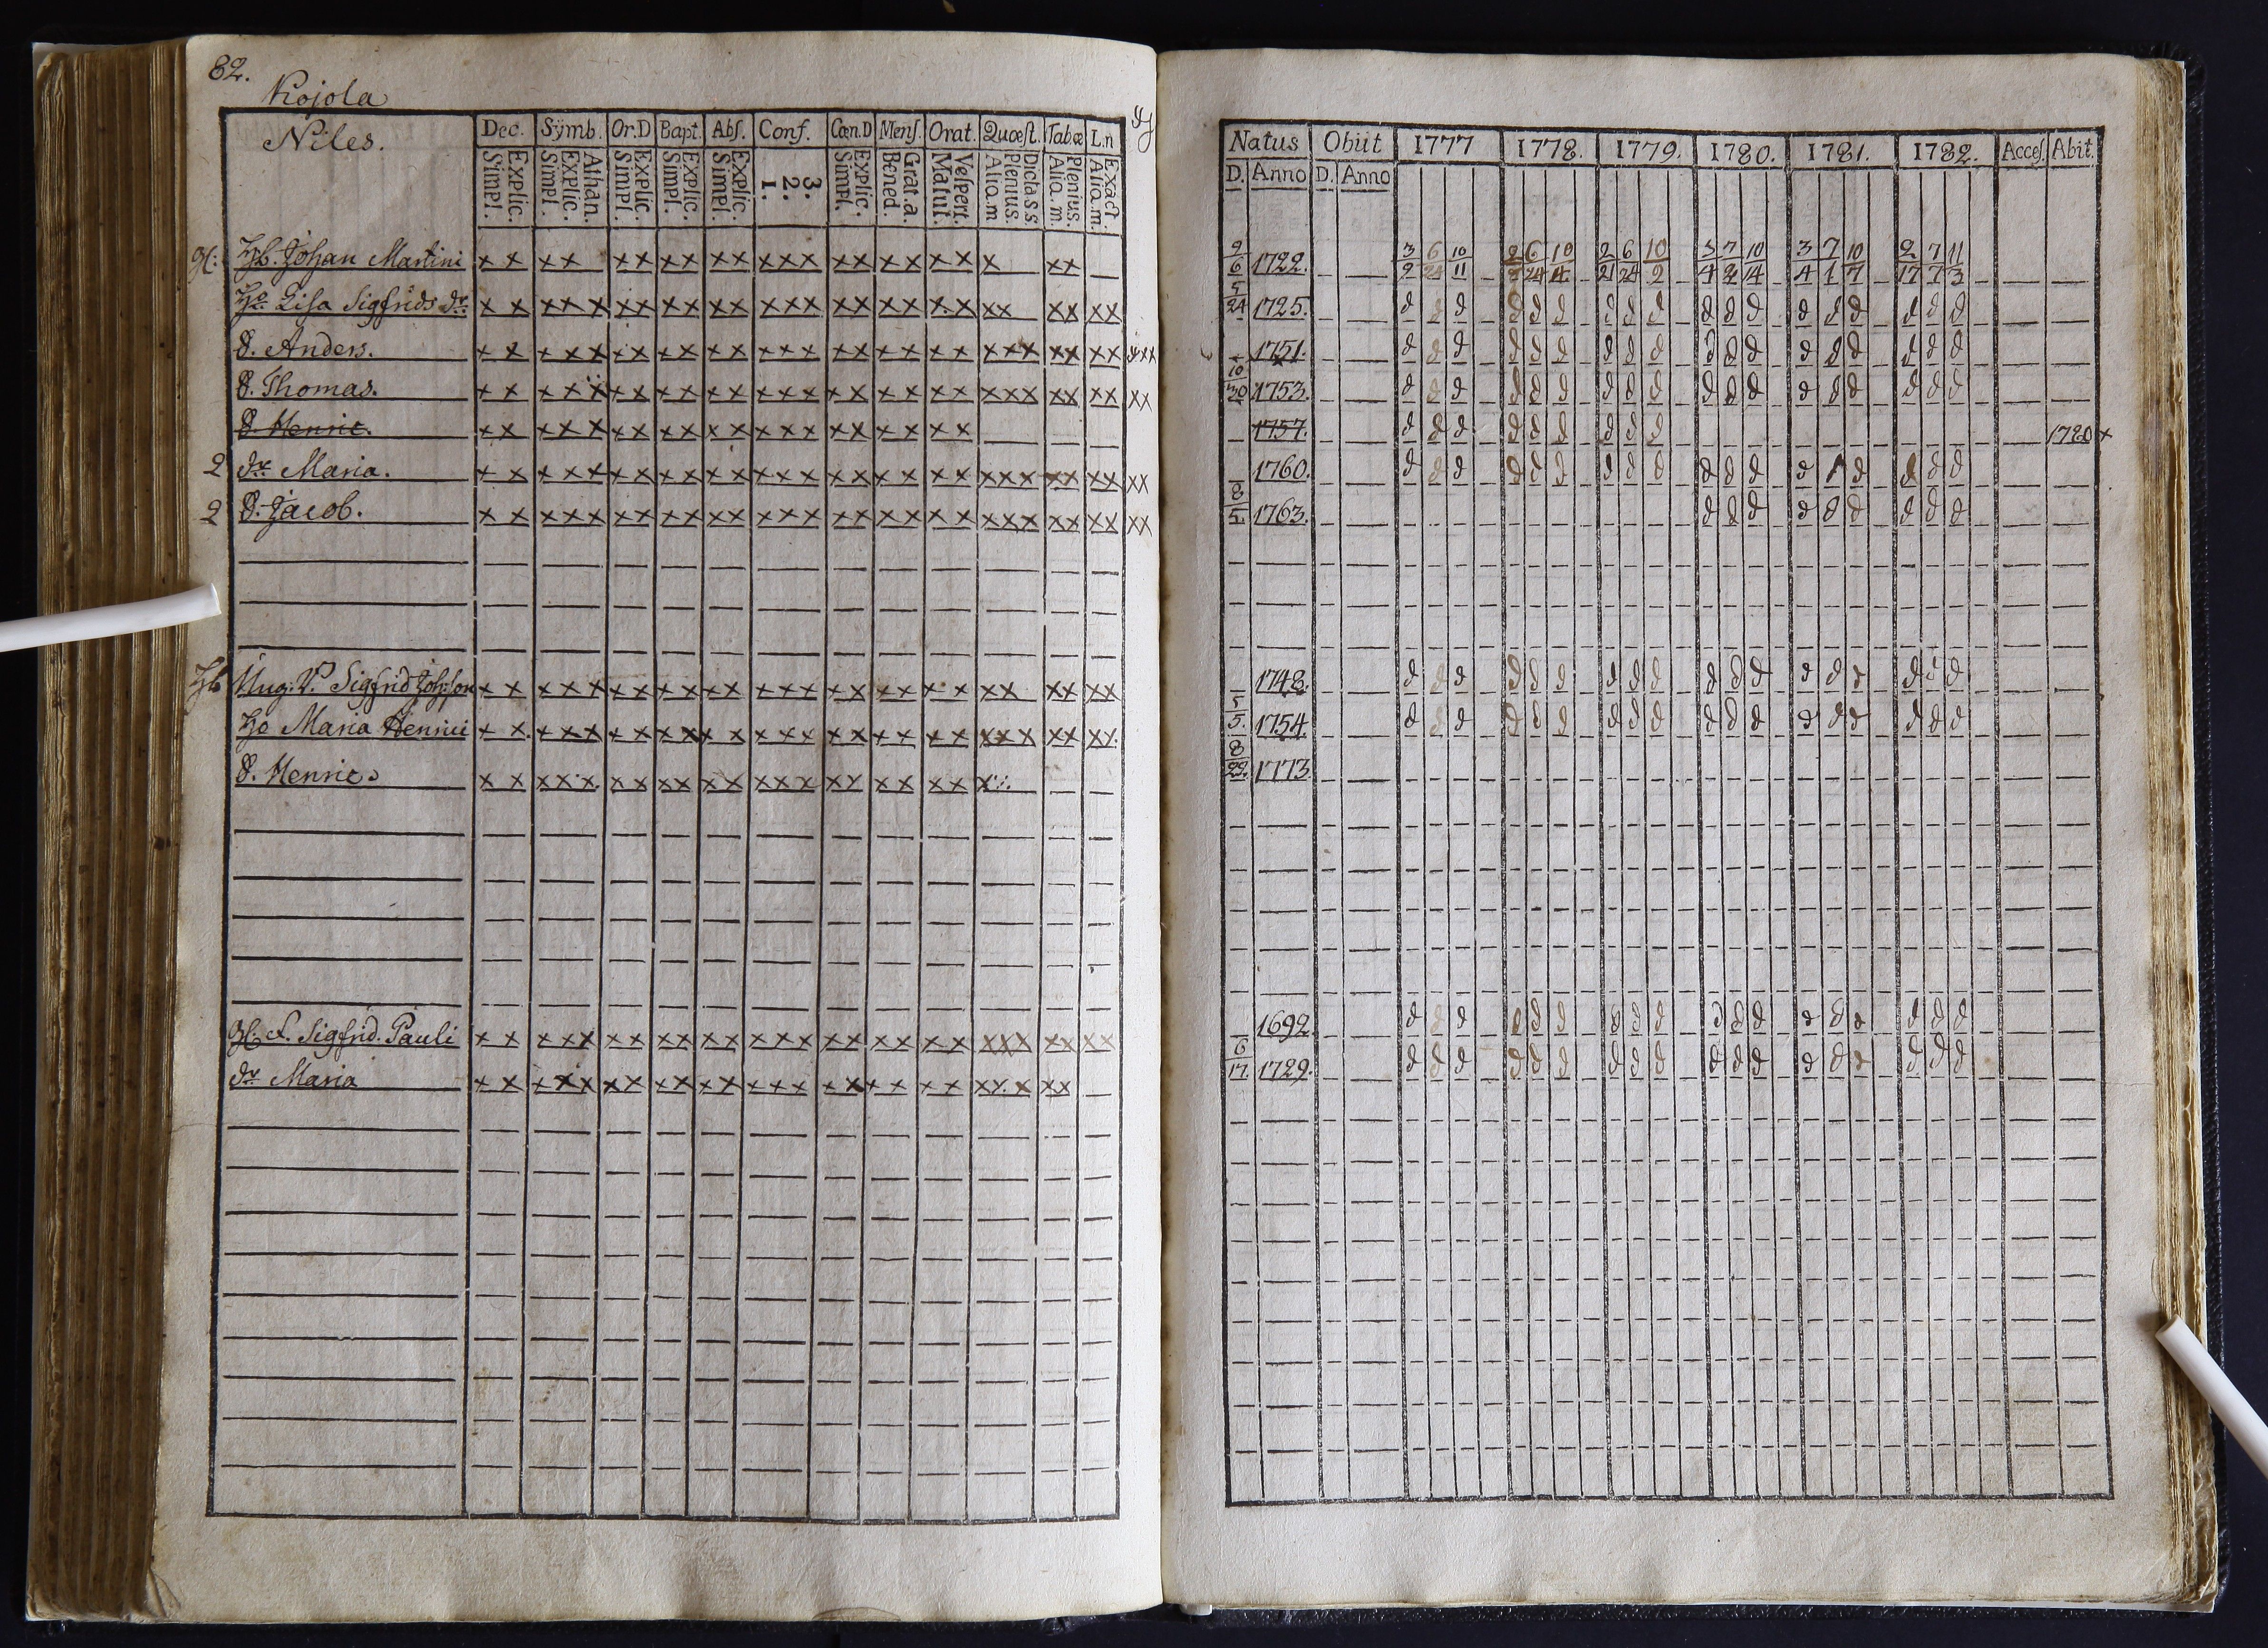 82.
Kojola
Niles.
Dec. Sÿmb. Or.D Bapt. Abſ. Conf. Cœn.D Menſ. Orat. Quœſt. Tabœ L.n
Explic. Simpl. Athan. Explic. Simpl. Explic. Simpl. Explic. Simpl. Explic. Simpl. 3. 2. 1. Explic. Simpl. Grat.a. Bened. Veſpert. Matut. Dicta s s. Plenius. Aliq.m Plenius. Aliq.m. Exact. Aliq.m.
Natus Obiit 1777 1778. 1779. 1780. 1781. 1782. Acceſ. Abit.
D. Anno D. Anno
Johan Martini x x x x x x x x x x x x x x x x x x x x x x 9/6 1722. 3/9 6/24 10/11 6/24 10/4 2/21 6/24 10/2 3/4 7/2 10/14 3/4 7/1 10/7 2/17 7/7 11/3
Lisa Sigfrids dr. x x x x x x x x x x x x x x x x x x x x x x x x x 5/24 1725. d d d d d d d d d d d d d d d d d d
S. Anders. x x x x x x x x x x x x x x x x x x x x x x x x x x x x x 1751. d d d d d d d d d d d d d d d d d d
S. Thomas. x x x x x x x x x x x x x x x x x x x x x x x x x x x x 10/20 1753. d d d d d d d d d d d d d d d d d d
S. Henric. x x x x x x x x x x x x x x x x x x x x 1757. d d d d d d d d d 1780 x
2 dr Maria. x x x x x x x x x x x x x x x x x x x x x x x x x x x x x 1760. d d d d d d d d d d d d d d d d d
2 S. Jacob. x x x x x x x x x x x x x x x x x x x x x x x x x x x x x 8/5 1763. d d d d d d d d d
Sigfrid Joh:son x x x x x x x x x x x x x x x x x x x x x x x x x x 1748. d d d d d d d d d d d d d d d d d d
Maria Henrici x x x x x x x x x x x x x x x x x x x x x x x x x x x 5/5. 1754. d d d d d d d d d d d d d d d d d d
S. Henric. x x x x x x x x x x x x x x x x x x x x x 8/22. 1773
Sigfrid. Pauli x x x x x x x x x x x x x x x x x x x x x x x x x x x 1692. d d d d d d d d d d d d d d d d d d
dr Maria x x x x x x x x x x x x x x x x x x x x x x x x x 6/17. 1729. d d d d d d d d d d d d d d d d d d